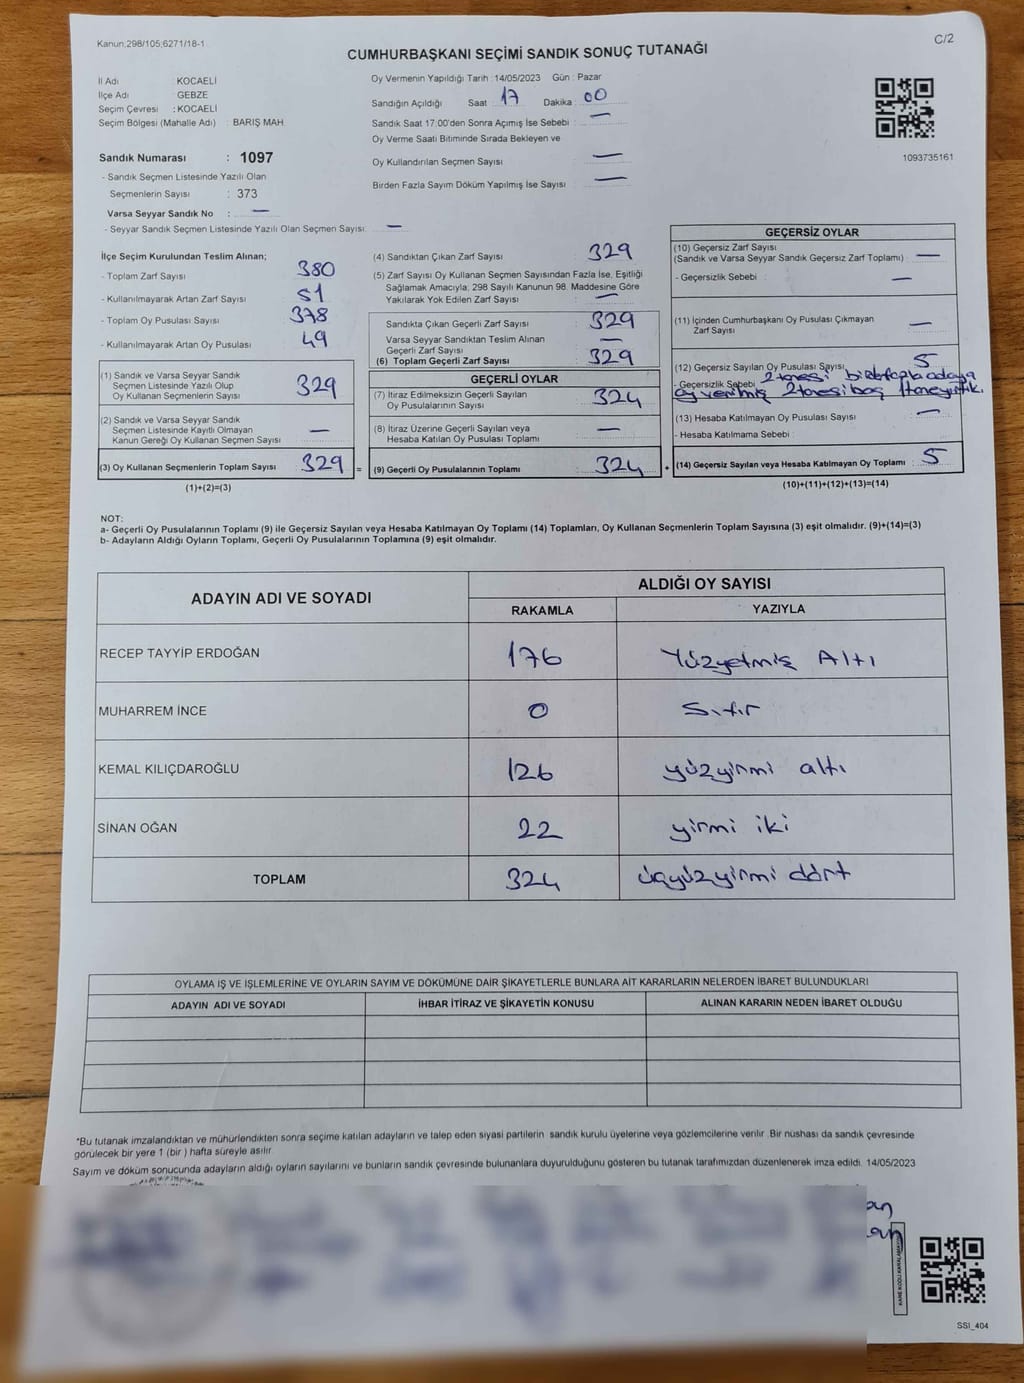 Kanun;298/105;6271/18-1
C/2
CUMHURBAŞKANI SEÇİMİ SANDIK SONUÇ TUTANAĞI
İl Adı KOCAELİ
İlçe Adı GEBZE
Seçim Çevresi : KOCAELİ
Seçim Bölgesi (Mahalle Adı) : BARIŞ MAH
Sandık Numarası : 1097
- Sandık Seçmen Listesinde Yazılı Olan
Seçmenlerin Sayısı : 373
Varsa Seyyar Sandık No : —
- Seyyar Sandık Seçmen Listesinde Yazılı Olan Seçmen Sayısı: —
Oy Vermenin Yapıldığı Tarih : 14/05/2023 Gün : Pazar
Sandığın Açıldığı Saat 17 Dakika 00
Sandık Saat 17:00'den Sonra Açımış İse Sebebi : —
Oy Verme Saati Bitiminde Sırada Bekleyen ve
Oy Kullandırılan Seçmen Sayısı —
Birden Fazla Sayım Döküm Yapılmış İse Sayısı —
1093735161
İlçe Seçim Kurulundan Teslim Alınan;
- Toplam Zarf Sayısı 380
- Kullanılmayarak Artan Zarf Sayısı 51
- Toplam Oy Pusulası Sayısı 378
- Kullanılmayarak Artan Oy Pusulası 49
(1) Sandık ve Varsa Seyyar Sandık
Seçmen Listesinde Yazılı Olup
Oy Kullanan Seçmenlerin Sayısı 329
(2) Sandık ve Varsa Seyyar Sandık
Seçmen Listesinde Kayıtlı Olmayan
Kanun Gereği Oy Kullanan Seçmen Sayısı —
(3) Oy Kullanan Seçmenlerin Toplam Sayısı 329 =
(1)+(2)=(3)
(4) Sandıktan Çıkan Zarf Sayısı 329
(5) Zarf Sayısı Oy Kullanan Seçmen Sayısından Fazla İse, Eşitliği
Sağlamak Amacıyla, 298 Sayılı Kanunun 98. Maddesine Göre
Yakılarak Yok Edilen Zarf Sayısı —
Sandıkta Çıkan Geçerli Zarf Sayısı 329
Varsa Seyyar Sandıktan Teslim Alınan
Geçerli Zarf Sayısı —
(6) Toplam Geçerli Zarf Sayısı 329
GEÇERLİ OYLAR
(7) İtiraz Edilmeksizin Geçerli Sayılan
Oy Pusulalarının Sayısı 324
(8) İtiraz Üzerine Geçerli Sayılan veya
Hesaba Katılan Oy Pusulası Toplamı —
(9) Geçerli Oy Pusulalarının Toplamı 324 +
GEÇERSİZ OYLAR
(10) Geçersiz Zarf Sayısı
(Sandık ve Varsa Seyyar Sandık Geçersiz Zarf Toplamı) : —
- Geçersizlik Sebebi : —
(11) İçinden Cumhurbaşkanı Oy Pusulası Çıkmayan
Zarf Sayısı —
(12) Geçersiz Sayılan Oy Pusulası Sayısı 5
- Geçersizlik Sebebi 2 tanesi birden fazla adaya
oy verilmiş 2 tanesi boş 1 tane yırtık.
(13) Hesaba Katılmayan Oy Pusulası Sayısı —
- Hesaba Katılmama Sebebi :
(14) Geçersiz Sayılan veya Hesaba Katılmayan Oy Toplamı 5
(10)+(11)+(12)+(13)=(14)
NOT:
a- Geçerli Oy Pusulalarının Toplamı (9) ile Geçersiz Sayılan veya Hesaba Katılmayan Oy Toplamı (14) Toplamları, Oy Kullanan Seçmenlerin Toplam Sayısına (3) eşit olmalıdır. (9)+(14)=(3)
b- Adayların Aldığı Oyların Toplamı, Geçerli Oy Pusulalarının Toplamına (9) eşit olmalıdır.
ADAYIN ADI VE SOYADI ALDIĞI OY SAYISI
RAKAMLA YAZIYLA
RECEP TAYYİP ERDOĞAN 176 Yüzyetmiş Altı
MUHARREM İNCE 0 Sıfır
KEMAL KILIÇDAROĞLU 126 yüzyirmi altı
SİNAN OĞAN 22 yirmi iki
TOPLAM 324 üçyüzyirmi dört
OYLAMA İŞ VE İŞLEMLERİNE VE OYLARIN SAYIM VE DÖKÜMÜNE DAİR ŞİKAYETLERLE BUNLARA AİT KARARLARIN NELERDEN İBARET BULUNDUKLARI
ADAYIN ADI VE SOYADI İHBAR İTİRAZ VE ŞİKAYETİN KONUSU ALINAN KARARIN NEDEN İBARET OLDUĞU
*Bu tutanak imzalandıktan ve mühürlendikten sonra seçime katılan adayların ve talep eden siyasi partilerin sandık kurulu üyelerine veya gözlemcilerine verilir. Bir nüshası da sandık çevresinde
görülecek bir yere 1 (bir ) hafta süreyle asılır.
Sayım ve döküm sonucunda adayların aldığı oyların sayılarını ve bunların sandık çevresinde bulunanlara duyurulduğunu gösteren bu tutanak tarafımızdan düzenlenerek imza edildi. 14/05/2023
KARE KODU KARALAMAYINIZ
SSI_404